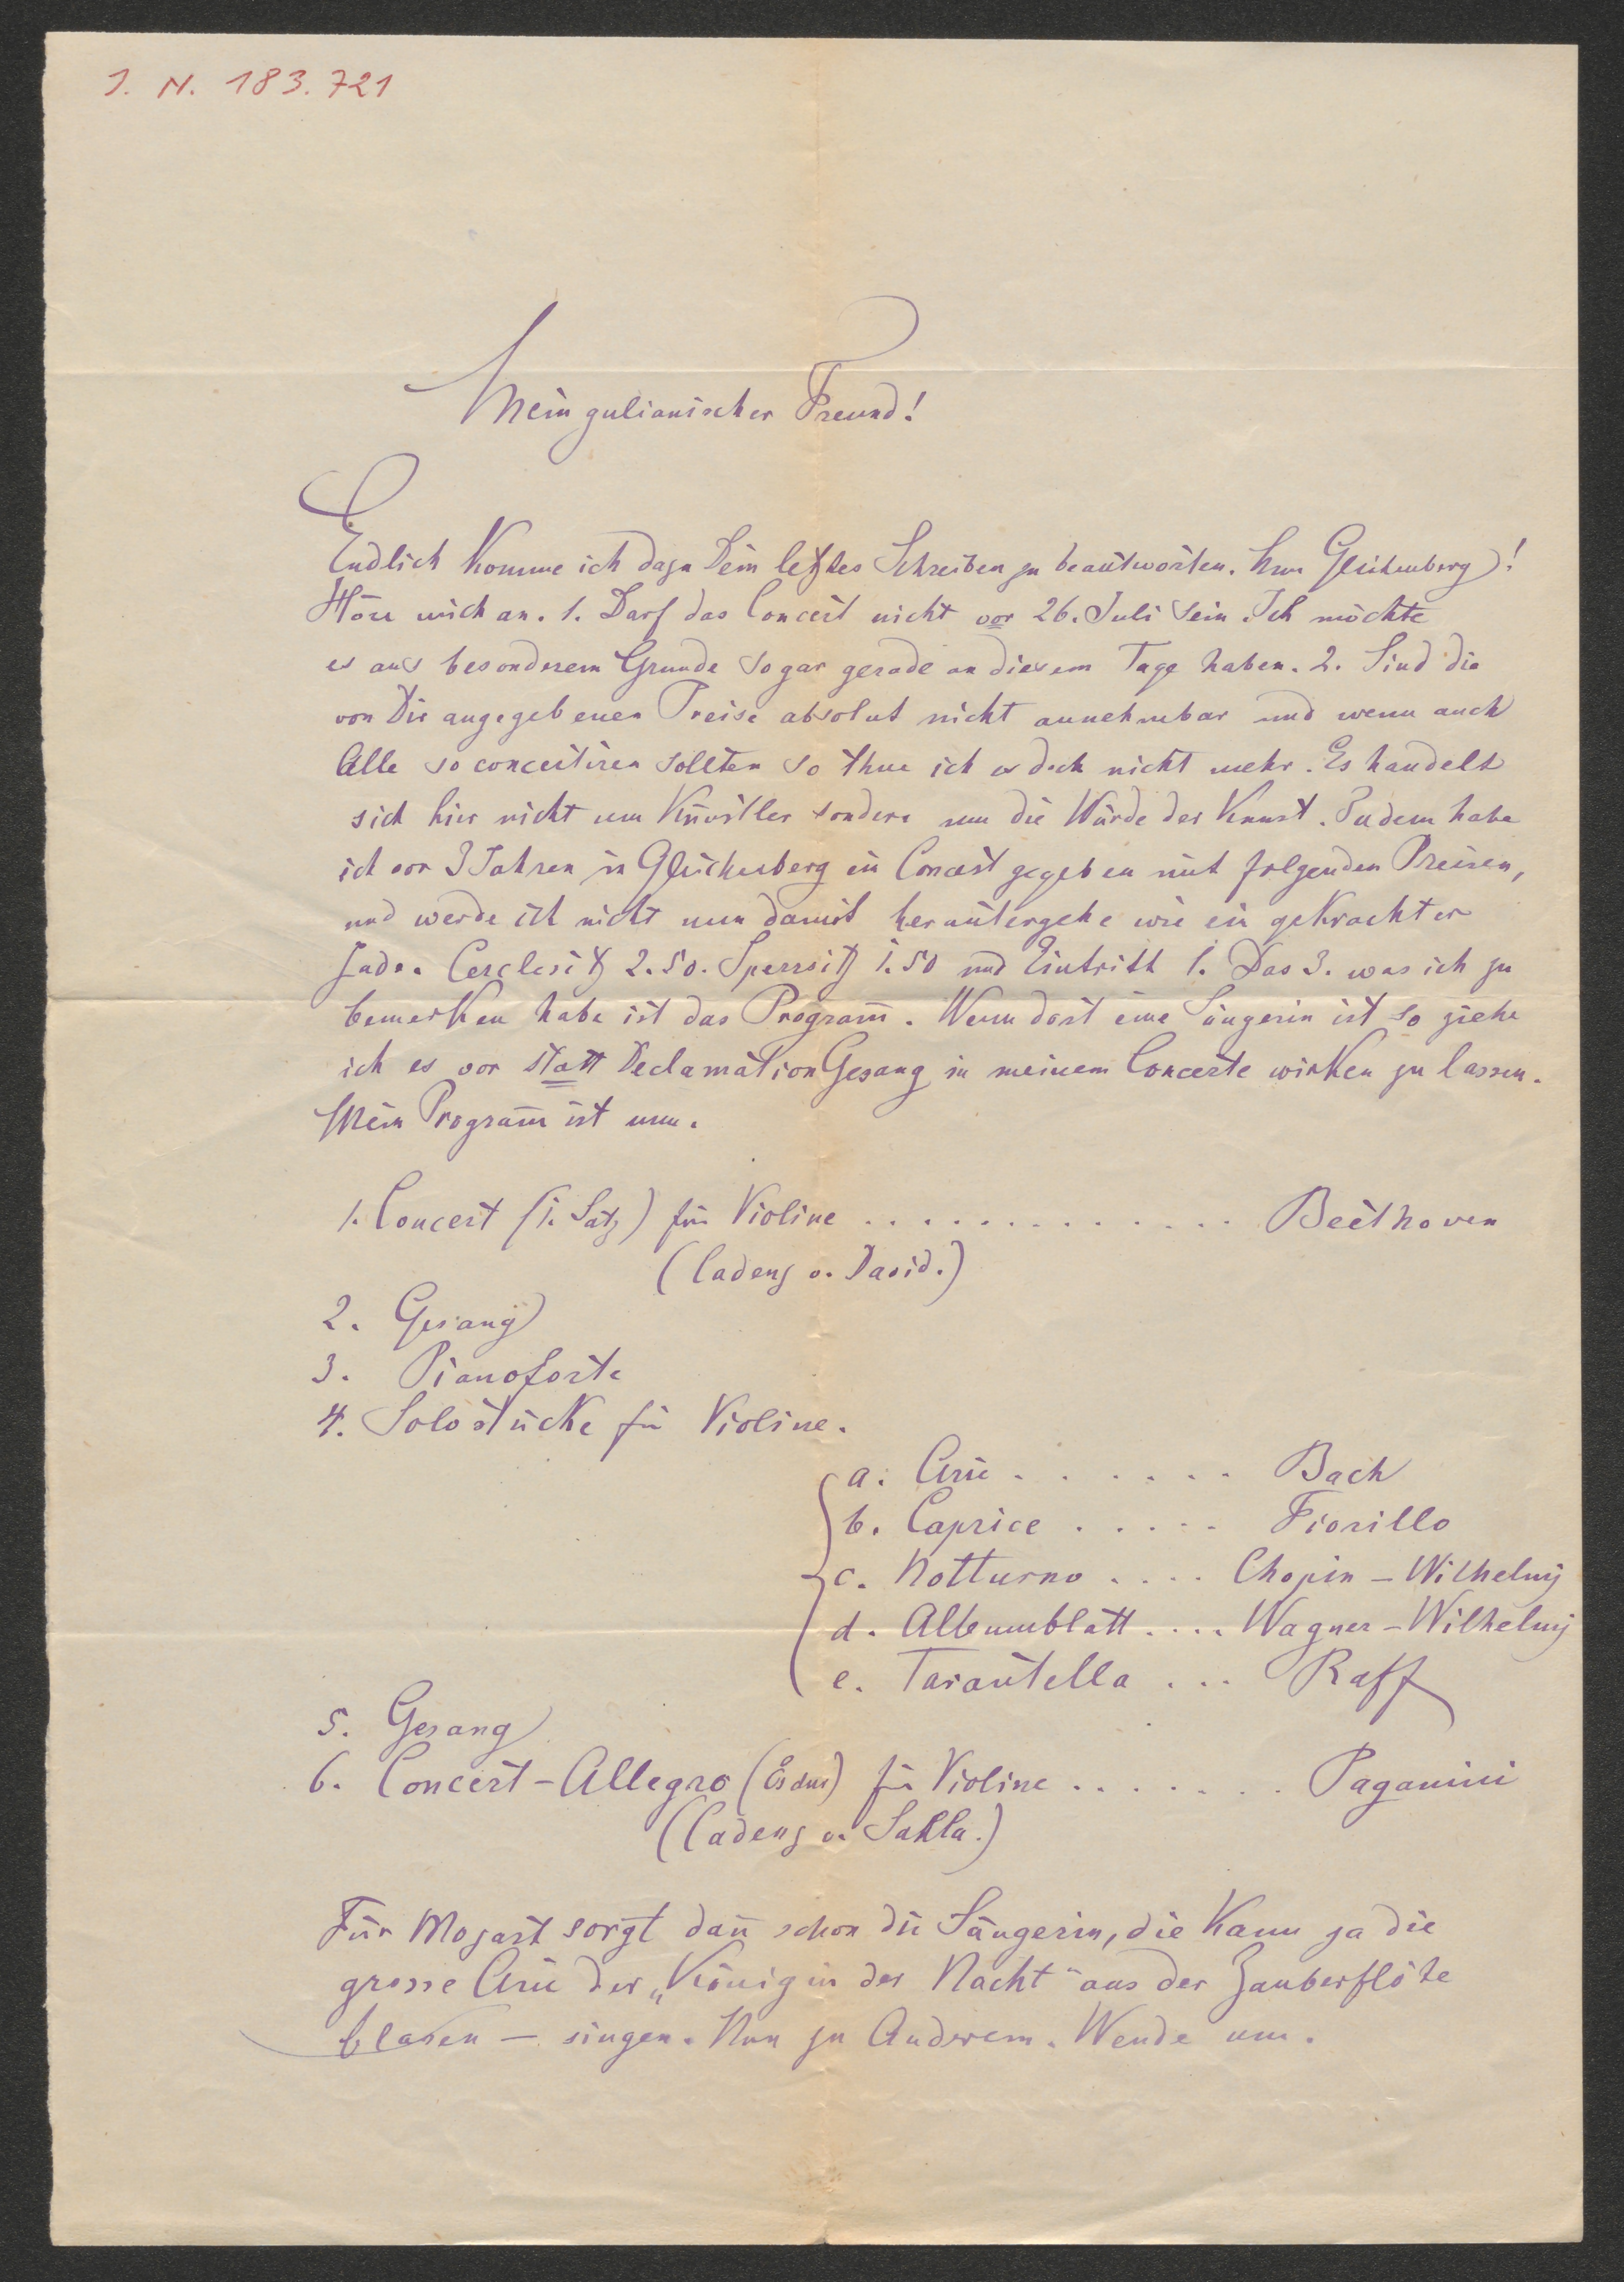 J. N. 183.721
Mein gulianischer Freund!
Endlich komme ich dazu Dein letztes Schreiben zu beantworten. Gleichenberg!
Höre mich an. 1. Darf das Concert nicht vor 26. Juli sein. Ich möchte
es aus besonderem Grunde sogar gerade an diesem Tage haben. 2. Sind die
von Dir angegebenen Preise absolut nicht annehmbar und wenn auch
Alle so concertiren sollten so thue ich es doch nicht mehr. Es handelt
sich hier nicht um Künstler sondern um die Würde der Kunst. Zudem habe
ich vor 3 Jahren in Gleichenberg ein Concert gegeben mit folgenden Preisen,
und werde ich nicht nun damit heruntergehe wie ein gekrachter
Jude. Cerclesitz 2.50. Sperrsitz 1.50 und Eintritt 1. Das 3. was ich zu
bemerken habe ist das Programm̄. Wenn dort eine Sängerin ist so ziehe
ich es vor statt Declamation Gesang in meinem Concerte wirken zu lassen.
Mein Program̄ ist nun.
1. Concert (1. Satz) für Violine . . . . . . . . . . . . . Beethoven
(Cadenz v. David.)
2. Gesang
3. Pianoforte
4. Solostücke für Violine.
a. Arie . . . . . . . Bach
b. Caprice . . . . . Fiorillo
c. Notturno . . . . Chopin – Wilhelmj
d. Albumblatt . . . . Wagner – Wilhelmj
e. Tarantella . . . Raff
5. Gesang
6. Concert – Allegro (Es dur) für Violine . . . . . . . . Paganini
(Cadenz v. Sahla.)
Für Mozart sorgt dan̄ schon die Sängerin, die kann ja die
grosse Arie der „Königin der Nacht“ aus der Zauberflöte
blasen – singen. Nun zu Anderem. Wende um.